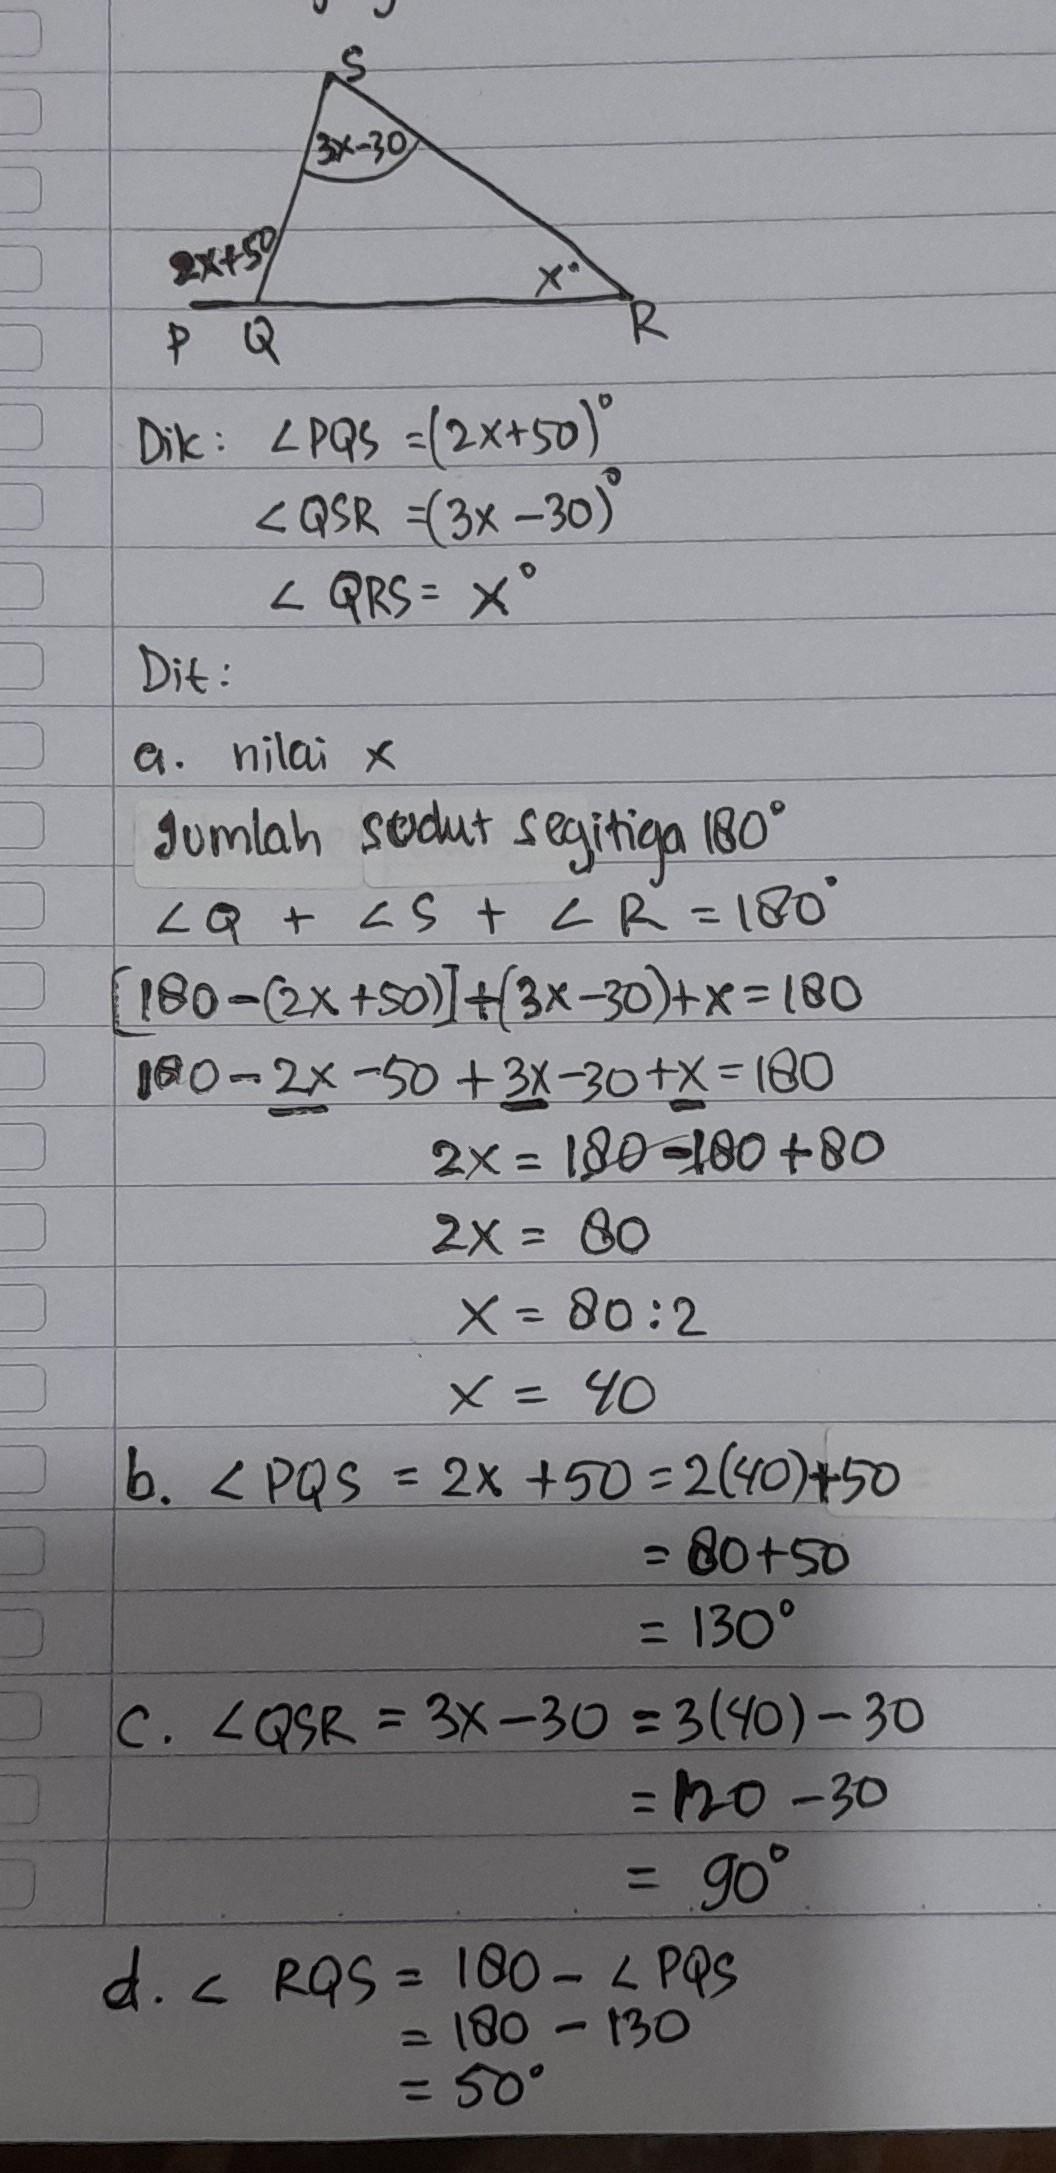 S
3x-30
2x+50
x°
P Q R
Dik: ∠PQS =(2x+50)°
∠QSR =(3x-30)°
∠QRS= x°
Dit:
a. nilai x
Jumlah sudut segitiga 180°
∠Q + ∠S + ∠R = 180°
[180-(2x+50)]+(3x-30)+x=180
180-2x-50+3x-30+x=180
2x = 180-180+80
2x = 80
x = 80:2
x = 40
b. ∠PQS = 2x+50=2(40)+50
= 80+50
= 130°
c. ∠QSR = 3x-30 = 3(40)-30
= 120-30
= 90°
d. ∠RQS = 180-∠PQS
= 180-130
= 50°